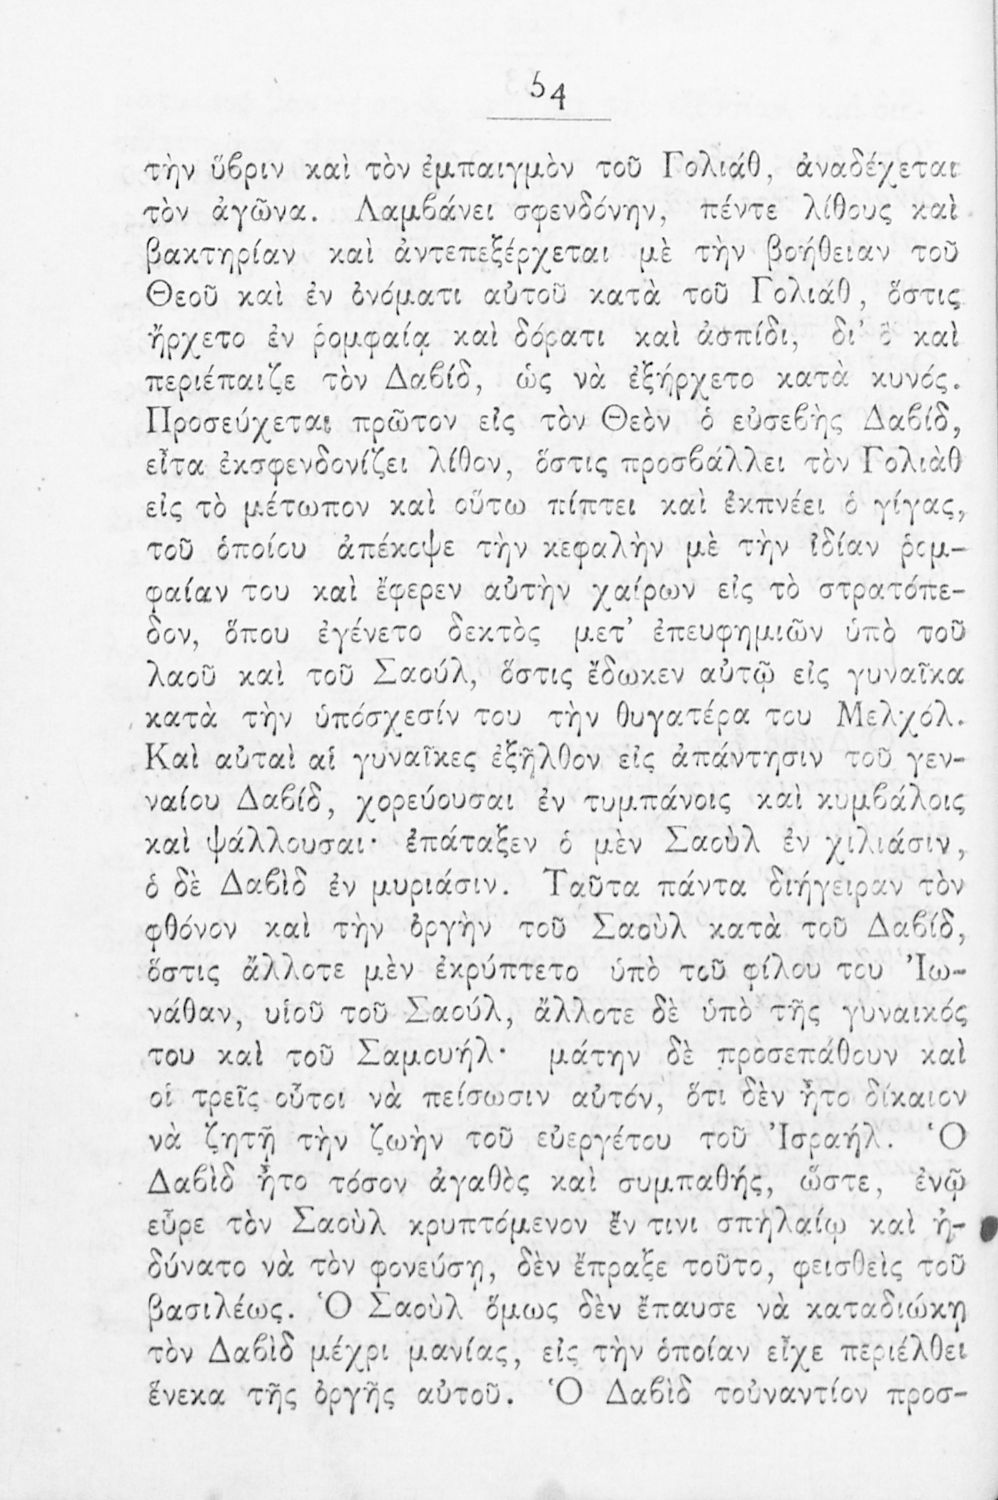 54
τὴν ὕβριν καὶ τὸν ἐμπαιγμὸν τοῦ Γολιάθ, ἀναδέχεται
τὸν ἀγῶνα. Λαμβάνει σφενδόνην, πέντε λίθους καὶ
βακτηρίαν καὶ ἀντεπεξέρχεται μὲ τὴν βοήθειαν τοῦ
Θεοῦ καὶ ἐν ὀνόματι αὐτοῦ κατὰ τοῦ Γολιάθ, ὅστις
ἤρχετο ἐν ῥομφαίᾳ καὶ δόρατι καὶ ἀσπίδι, δι’ ὃ καὶ
περιέπαιζε τὸν Δαβίδ, ὡς νὰ ἐξήρχετο κατὰ κυνός.
Προσεύχεται πρῶτον εἰς τὸν Θεὸν ὁ εὐσεβὴς Δαβίδ,
εἶτα ἐκσφενδονίζει λίθον, ὅστις προσβάλλει τὸν Γολιὰθ
εἰς τὸ μέτωπον καὶ οὕτω πίπτει καὶ ἐκπνέει ὁ γίγας,
τοῦ ὁποίου ἀπέκοψε τὴν κεφαλὴν μὲ τὴν ἰδίαν ῥομ-
φαίαν του καὶ ἔφερεν αὐτὴν χαίρων εἰς τὸ στρατόπε-
δον, ὅπου ἐγένετο δεκτὸς μετ’ ἐπευφημιῶν ὑπὸ τοῦ
λαοῦ καὶ τοῦ Σαούλ, ὅστις ἔδωκεν αὐτῷ εἰς γυναῖκα
κατὰ τὴν ὑπόσχεσίν του τὴν θυγατέρα του Μελχόλ.
Καὶ αὐταὶ αἱ γυναῖκες ἐξῆλθον εἰς ἀπάντησιν τοῦ γεν-
ναίου Δαβίδ, χορεύουσαι ἐν τυμπάνοις καὶ κυμβάλοις
καὶ ψάλλουσαι· ἐπάταξεν ὁ μὲν Σαοὺλ ἐν χιλιάσιν,
ὁ δὲ Δαβὶδ ἐν μυριάσιν. Ταῦτα πάντα διήγειραν τὸν
φθόνον καὶ τὴν ὀργὴν τοῦ Σαοὺλ κατὰ τοῦ Δαβίδ,
ὅστις ἄλλοτε μὲν ἐκρύπτετο ὑπὸ τοῦ φίλου του Ἰω-
νάθαν, υἱοῦ τοῦ Σαούλ, ἄλλοτε δὲ ὑπὸ τῆς γυναικός
του καὶ τοῦ Σαμουήλ· μάτην δὲ προσεπάθουν καὶ
οἱ τρεῖς οὗτοι νὰ πείσωσιν αὐτόν, ὅτι δὲν ἦτο δίκαιον
νὰ ζητῇ τὴν ζωὴν τοῦ εὐεργέτου τοῦ Ἰσραήλ. Ὁ
Δαβὶδ ἦτο τόσον ἀγαθὸς καὶ συμπαθής, ὥστε, ἐνῷ
εὗρε τὸν Σαοὺλ κρυπτόμενον ἔν τινι σπηλαίῳ καὶ ἠ-
δύνατο νὰ τὸν φονεύσῃ, δὲν ἔπραξε τοῦτο, φεισθεὶς τοῦ
βασιλέως. Ὁ Σαοὺλ ὅμως δὲν ἔπαυσε νὰ καταδιώκῃ
τὸν Δαβὶδ μέχρι μανίας, εἰς τὴν ὁποίαν εἶχε περιέλθει
ἕνεκα τῆς ὀργῆς αὐτοῦ. Ὁ Δαβὶδ τοὐναντίον προσ-